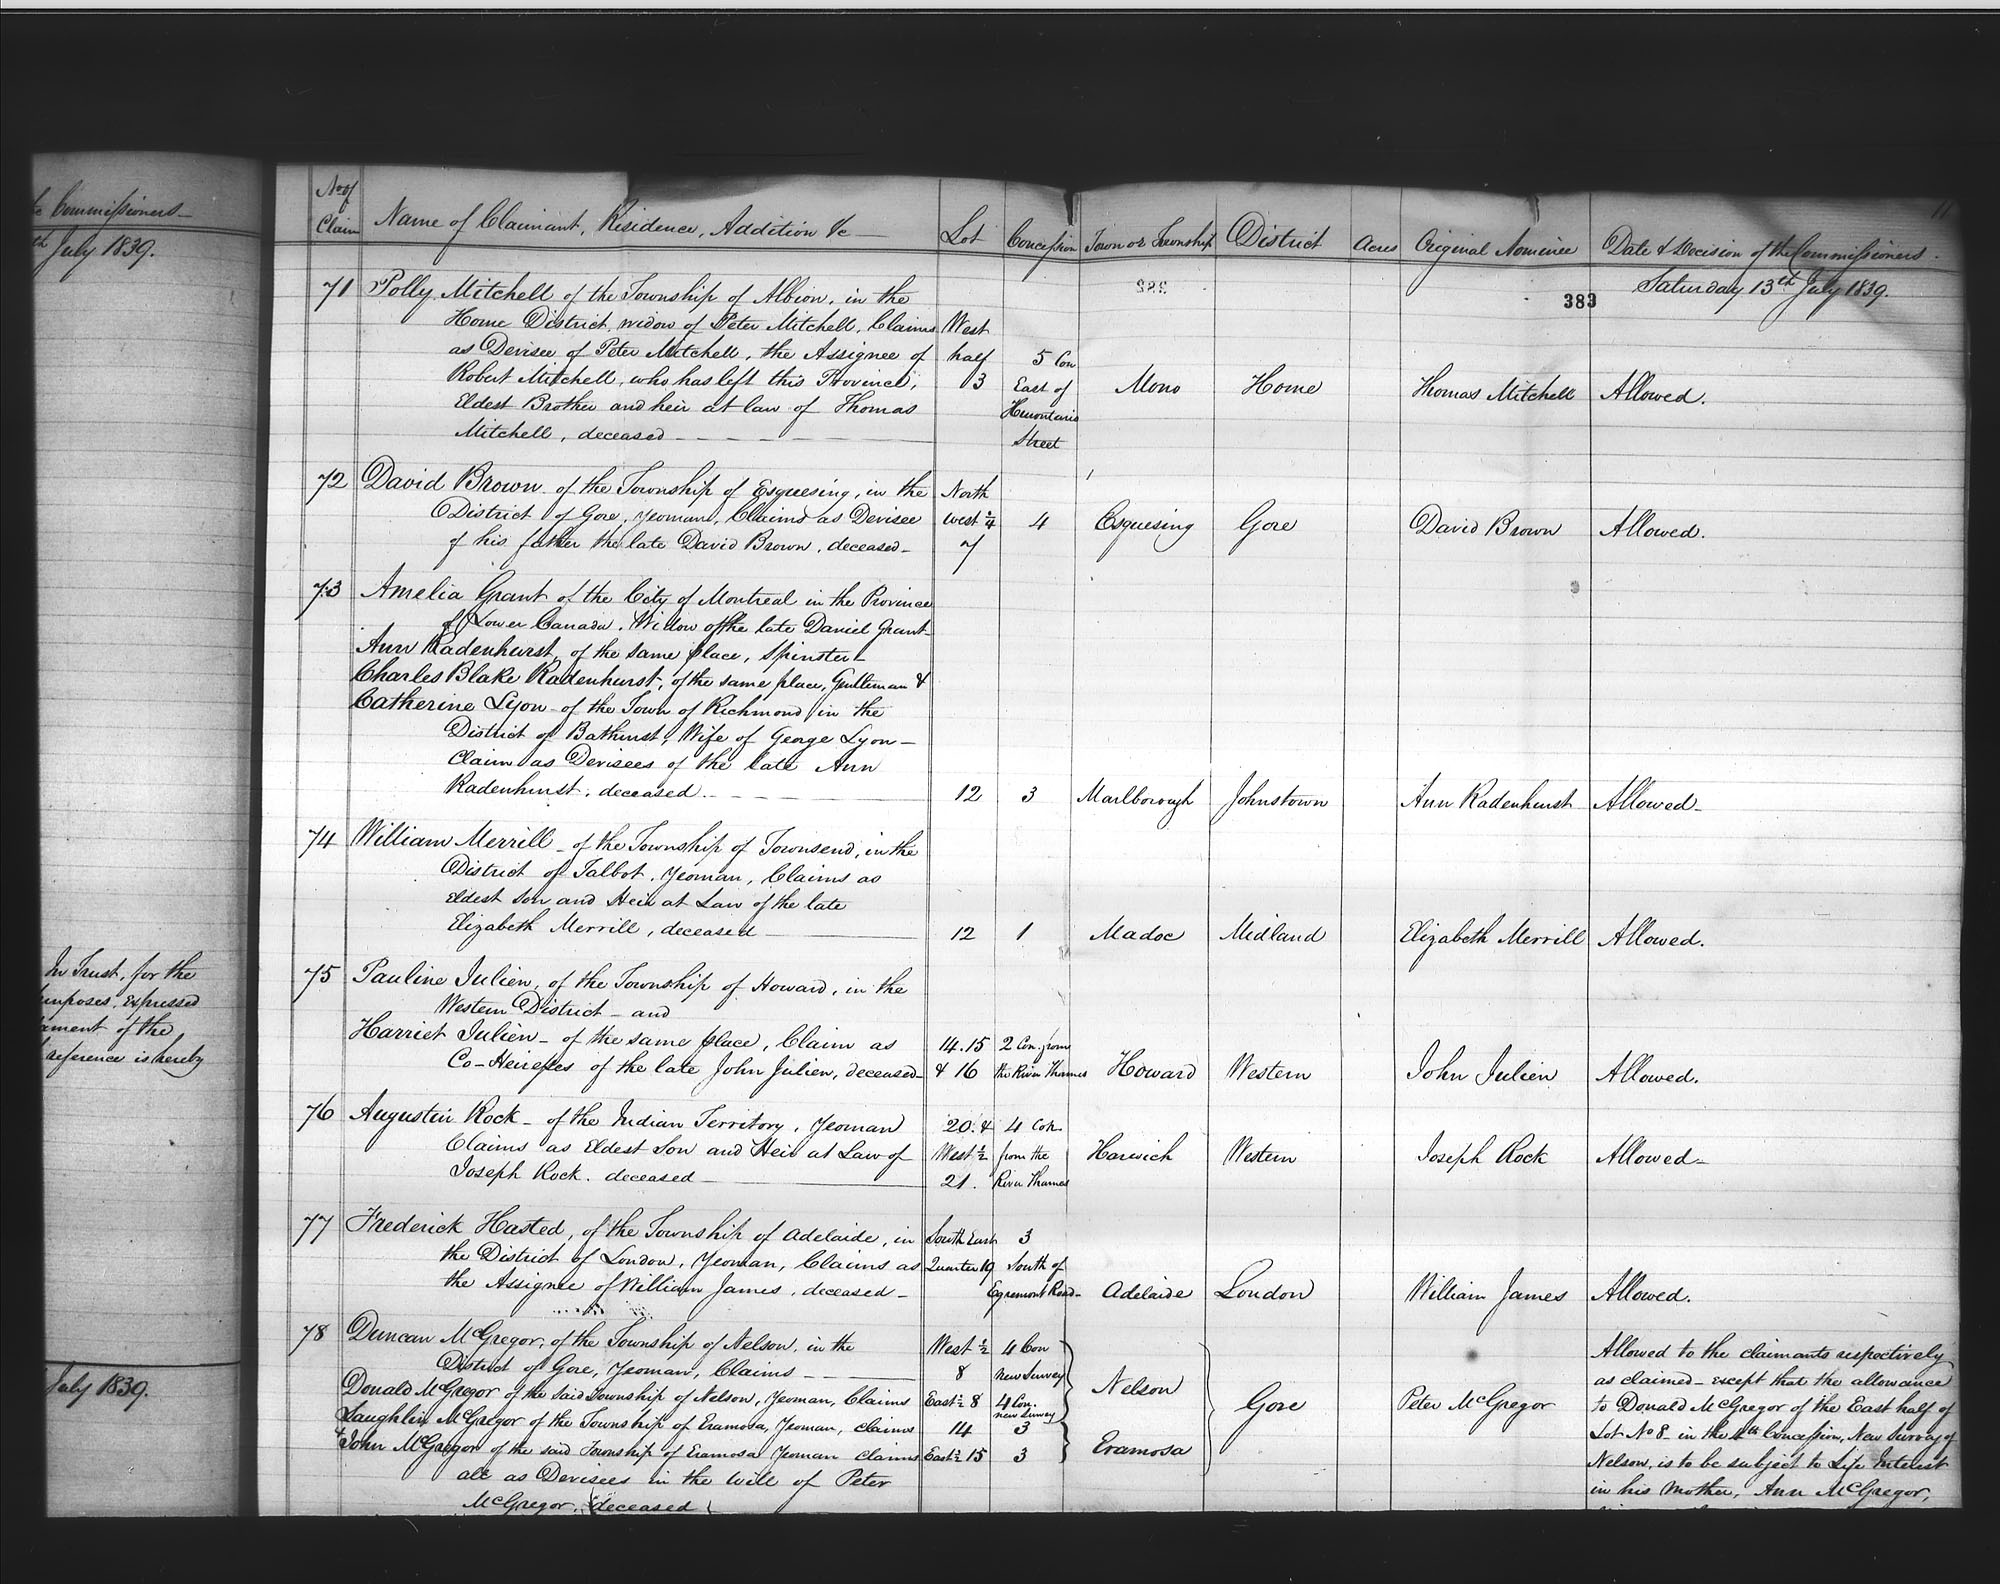 Commissioners
July 1839.
In Trust, for the
purposes expressed
of the
reference is hereby
July 1839.
11
No of
Claim
Name of Claimant, Residence, Addition &c
Lot
Concession
Town or Township
District
Acres
Original Nominee
Date & Decision of the Commissioners.
383
Saturday 13th July 1839.
71
Polly Mitchell of the Township of Albion, in the
Home District, widow of Peter Mitchell, Claims
as Devisee of Peter Mitchell, the Assignee of
Robert Mitchell, who has left this Province,
Eldest Brother and heir at law of Thomas
Mitchell, deceased
West
half
3
5 Con
East of
Hurontario
Street
Mono
Home
Thomas Mitchell
Allowed.
72
David Brown of the Township of Esquesing, in the
District of Gore, Yeoman, Claims as Devisee
of his father the late David Brown, deceased
North
west ¼
7
4
Esquesing
Gore
David Brown
Allowed.
73
Amelia Grant of the City of Montreal in the Province
of Lower Canada, Widow of the late Daniel Grant
Ann Radenhurst, of the same place, Spinster
Charles Blake Radenhurst, of the same place, Gentleman &
Catherine Lyon of the Town of Richmond in the
District of Bathurst, Wife of George Lyon
Claim as Devisees of the late Ann
Radenhurst, deceased.
12
3
Marlborough
Johnstown
Ann Radenhurst
Allowed
74
William Merrill of the Township of Townsend, in the
District of Talbot, Yeoman, Claims as
Eldest Son and Heir at Law of the late
Elizabeth Merrill, deceased
12
1
Madoc
Midland
Elizabeth Merrill
Allowed.
75
Pauline Julien, of the Township of Howard, in the
Western District and
Harriet Julien of the same place, Claim as
Co-Heiresses of the late John Julien, deceased
14.15
& 16
2 Con. from
the River Thames
Howard
Western
John Julien
Allowed.
76
Augustin Rock of the Indian Territory, Yeoman
Claims as Eldest Son and Heir at Law of
Joseph Rock, deceased
20. &
West ½
21.
4 Con
from the
River Thames
Harwich
Western
Joseph Rock
Allowed
77
Frederick Hasted, of the Township of Adelaide, in
the District of London, Yeoman, Claims as
the Assignee of William James, deceased
South East
Quarter 19
3
South of
Egremont Road
Adelaide
London
William James
Allowed.
78
Duncan McGregor, of the Township of Nelson, in the
District of Gore, Yeoman, Claims
Donald McGregor of the said Township of Nelson, Yeoman, Claims
Laughlin McGregor of the Township of Eramosa, Yeoman, claims
& John McGregor of the said Township of Eramosa Yeoman claims
all as Devisees in the Will of Peter
McGregor, deceased
West ½
8
East ½ 8
14
East ½ 15
4 Con
new Survey
4 Con.
new Survey
3
3
Nelson
Eramosa
Gore
Peter McGregor
Allowed to the claimants respectively
as claimed except that the allowance
to Donald McGregor of the East half of
Lot No 8 in the 4th Concession, New Survey of
Nelson, is to be subject to Life Interest
in his mother, Ann McGregor,